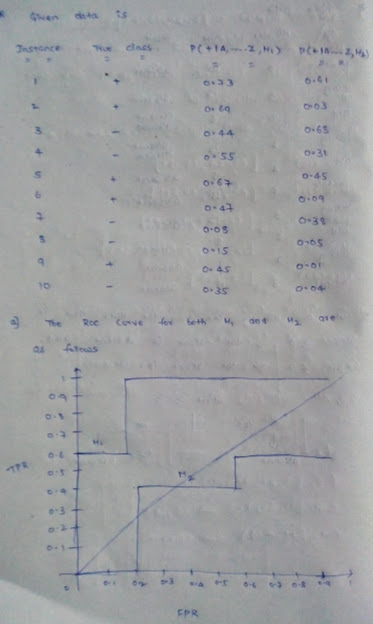 Given data is
Instance True class P(+1A,....Z,M1) P(+1A...Z,M2)
1 + 0.73 0.61
2 + 0.69 0.03
3 - 0.44 0.68
4 - 0.55 0.31
5 + 0.67 0.45
6 + 0.47 0.09
7 - 0.08 0.38
8 - 0.15 0.05
9 + 0.45 0.01
10 - 0.35 0.04
a) The ROC curve for both M1 and M2 are
as follows
1
0.9
0.8
0.7
0.6 M1
TPR
0.5
0.4 M2
0.3
0.2
0.1
0 0.1 0.2 0.3 0.4 0.5 0.6 0.7 0.8 0.9 1
FPR